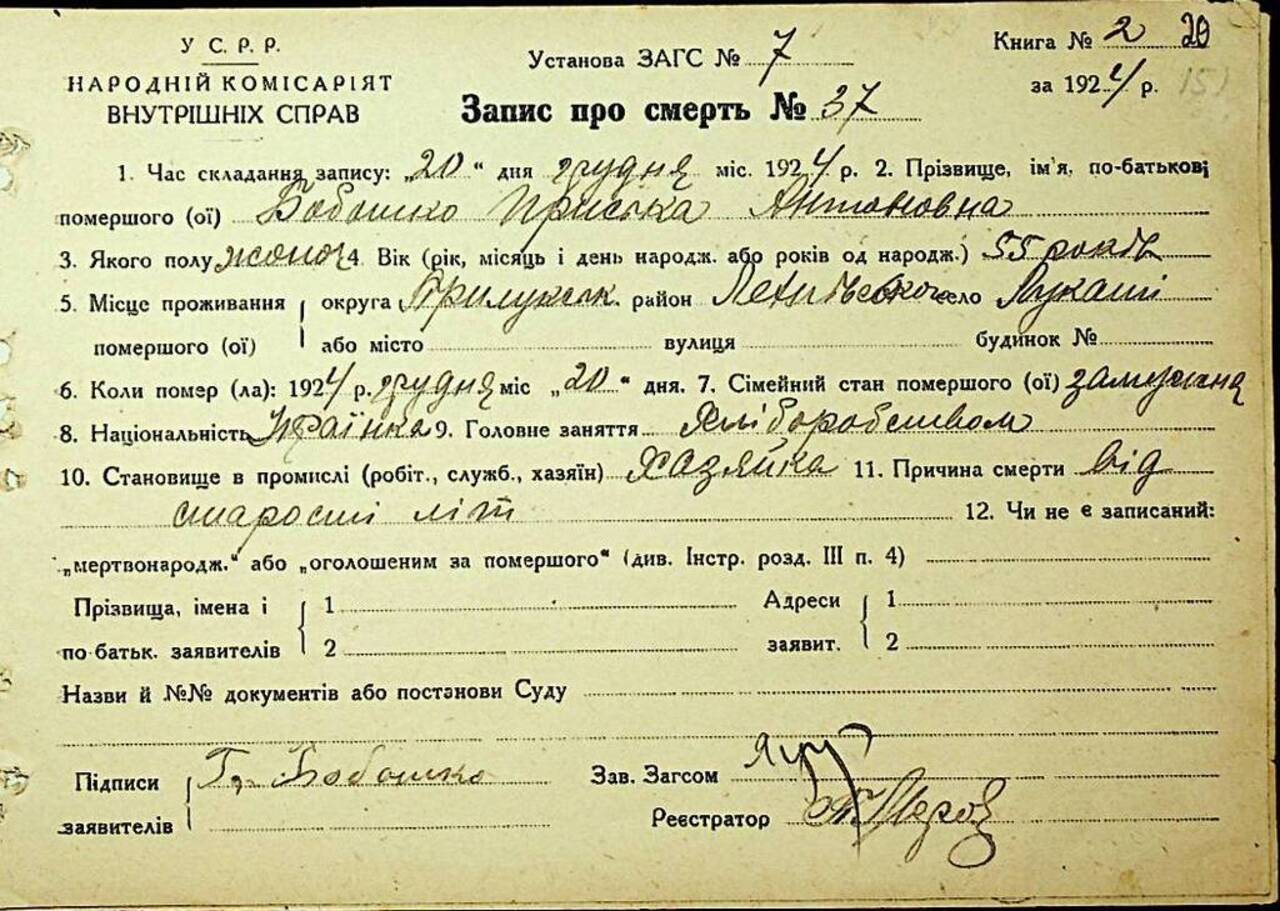 У С. Р. Р.
НАРОДНІЙ КОМІСАРІЯТ
ВНУТРІШНІХ СПРАВ
Установа ЗАГС № 7
Запис про смерть № 37
Книга № 2 20
за 1924 р. 151
1. Час складання запису: „20“ дня грудня міс. 1924 р. 2. Прізвище, ім'я, по-батькові
помершого (ої) Бобошко Приська Антоновна
3. Якого полу жоноч 4. Вік (рік, місяць і день народж. або років од народж.) 55 років
5. Місце проживання округа Прилукськ. район село Лукаші
помершого (ої) або місто вулиця будинок №
6. Коли помер (ла): 1924 р. грудня міс „20“ дня. 7. Сімейний стан помершого (ої) замужня
8. Національність Украінка 9. Головне заняття Хліборобством
10. Становище в промислі (робіт., служб., хазяїн) Хазяйка 11. Причина смерти від
старости літ 12. Чи не є записаний:
„мертвонародж.“ або „оголошеним за помершого“ (див. Інстр. розд. III п. 4)
Прізвища, імена і 1 Адреси 1
по-батьк. заявителів 2 заявит. 2
Назви й №№ документів або постанови Суду
Підписи Гр. Бобошко Зав. Загсом
заявителів Реєстратор